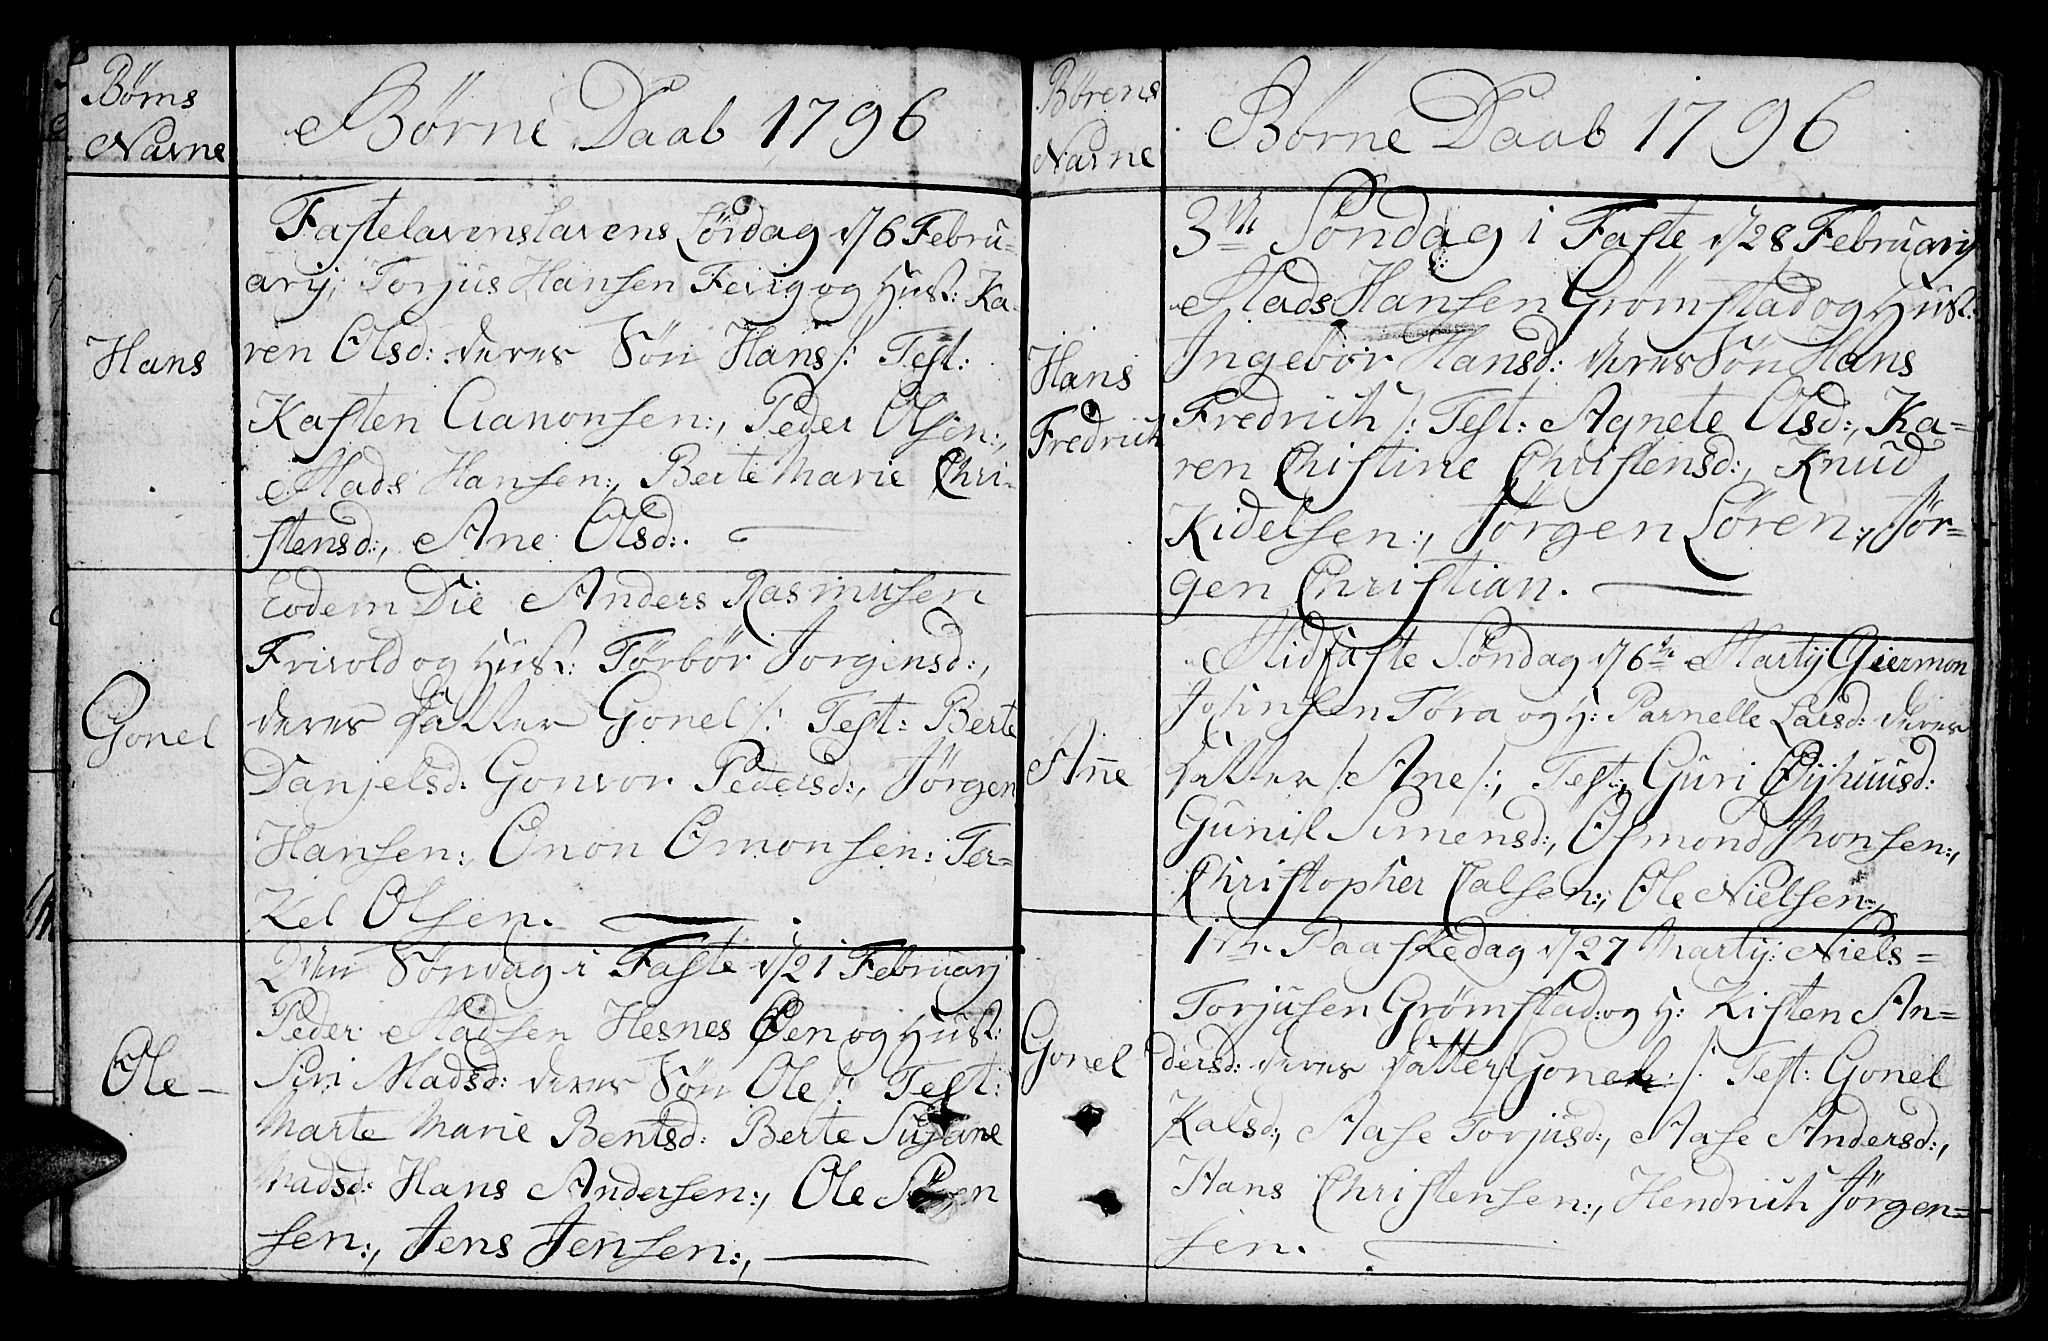 Børns
Navne
Børne Daab 1796
Hans
Fastelavenslavens Lördag d/6 Febru=
arij, Torjus Hansen Fevig og Hust: Ka-
ren Olsd: deres Sön Hans /: Test:
Kasten Aanonsen:, Peder Olsen:,
Mads Hansen:, Berte Marie Chri-
stensd:, Ane Olsd:.
Gonel
Eodem Die Anders Rasmusen
Frivold og Hust: Törbör Jorgensd:,
deres datter Gonel /: Test: Berte
Danjelsd: Gonvor Pedersd:, Jörgen
Hansen:, Onon Omonsen: Ter=
Kel Olsen.
Ole
2den Söndag i Faste d/21 Februarij
Peder Madsen Hesnes Öen og Hust:
Siri Madsd: deres Sön Ole /: Test:
Marte Marie Bentsd: Berte Susane
Madsd: Hans Andersen:, Ole
sen:, Jens Jensen:,
Børens
Navne
Børne Daab 1796
Hans
Fredrich
3die Söndag i Faste d/28 Februarij
Mads Hansen Grömstad og Hust:
Ingebor Hansd: deres Sön Hans
Fredrich /: Test: Agnete Olsd:, Ka=
ren Christine Christensd:, Knud
Kidelsen:, Jörgen Lören:, Jör=
gen Christian.
Ane
Midfaste Söndag d/6te Martij Giermon
Josinsen Töra og H: Parnelle Larsd: deres
datter /: Ane /:, Test:, Guri
Gunil Simensd:, Osmond Thonsen:,
Christopher Calsen:, Ole Nielsen:,
Gonel
1te Paaskedag d/27 Martij: Niels=
Torjusen Grömstad: og H: Kisten An=
dersd: deres datter Gonel /: Test: Gonel
Kalsd:, Aase Torjusd:, Aase Andersd:,
Hans Christensen:, Hendrich Jörgen=
sen.